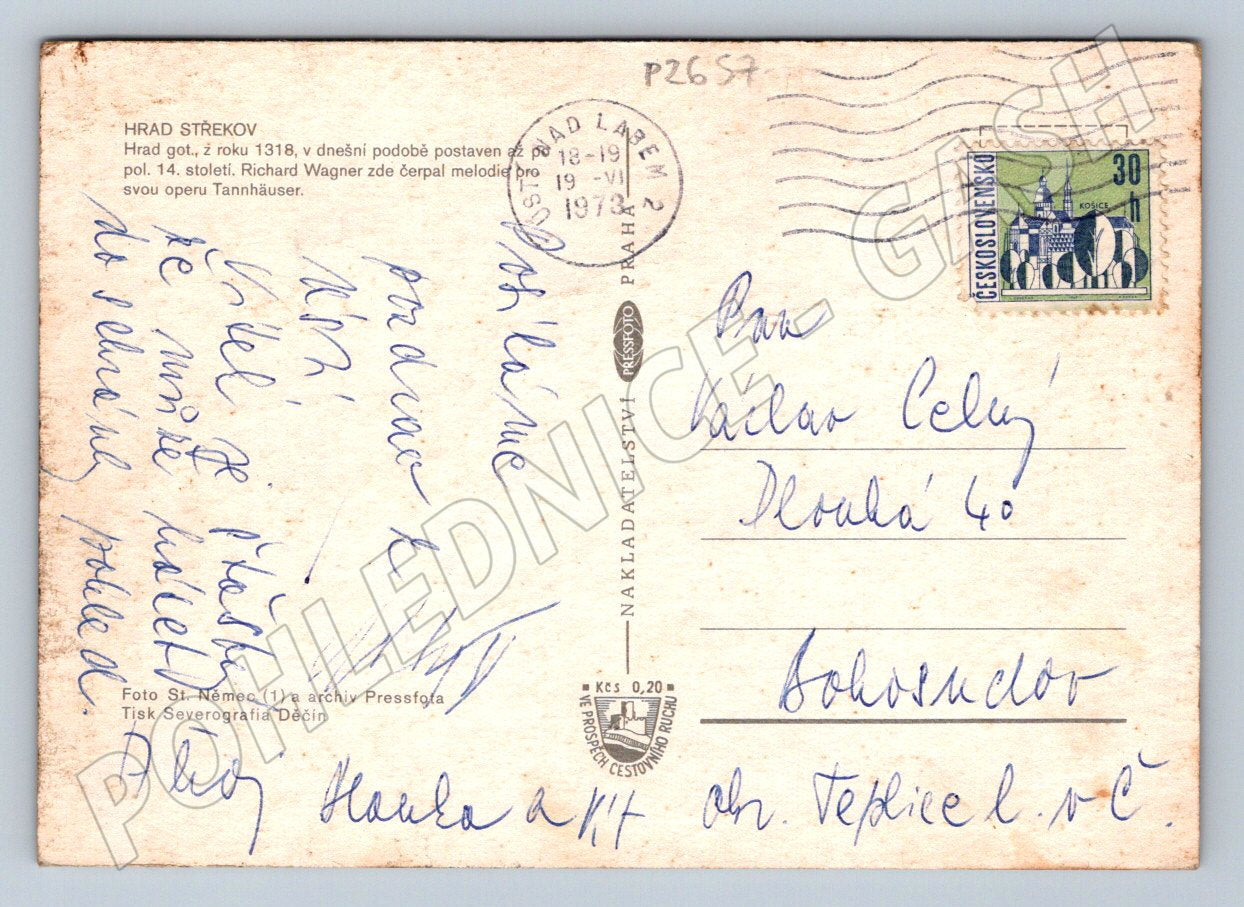 P2657
HRAD STŘEKOV
Hrad got., z roku 1318, v dnešní podobě postaven až po
pol. 14. století. Richard Wagner zde čerpal melodie pro
svou operu Tannhäuser.
ÚSTÍ NAD LABEM 2
18-19
19.-VI
1973
ČESKOSLOVENSKO
30
h
KOŠICE
Posíláme
pozdrav k
Vítek
že může
do schrány pohled.
Ahoj Hanka a Vít
NAKLADATELSTVÍ PRESSFOTO PRAHA
Pan
Václav Celný
Dlouhá 40
Bohosudov
okr. Teplice l. v Č.
Foto St. Němec (1) a archiv Pressfota
Tisk Severografia Děčín
Kčs 0,20
VE PROSPĚCH CESTOVNÍHO RUCHU
POHLEDNICE - GASH